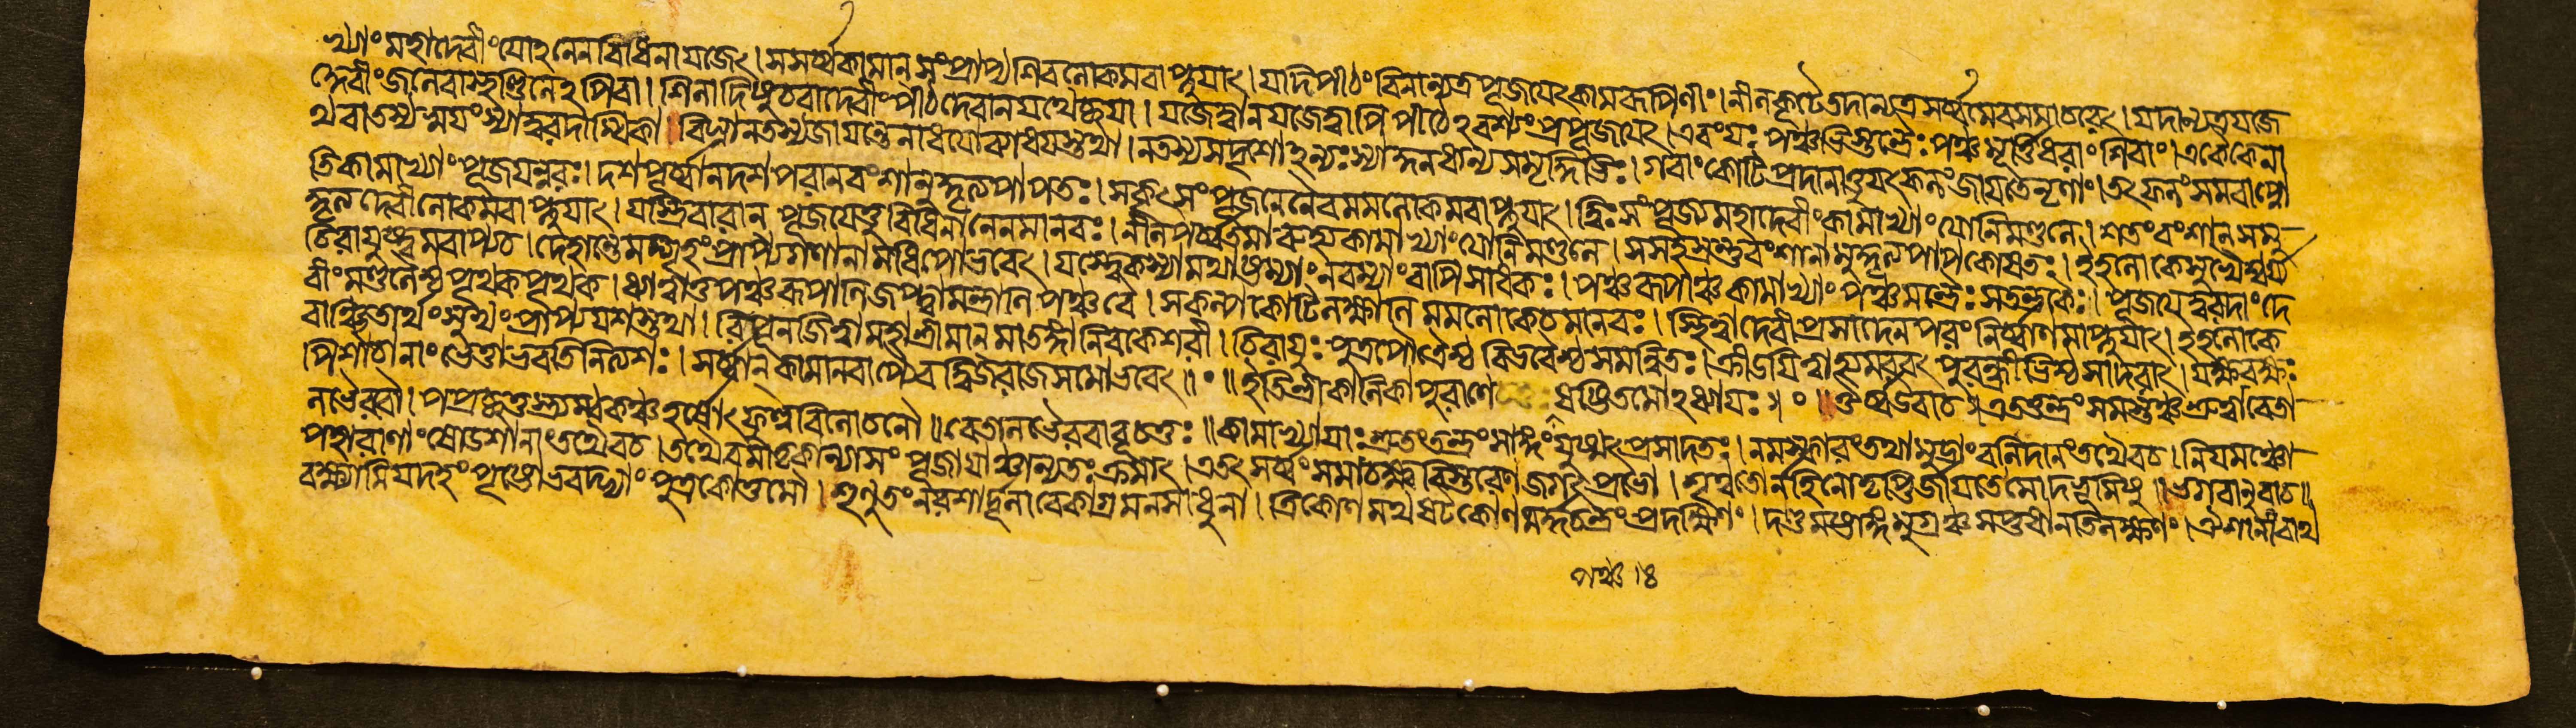 খ্যাং মহাদেবীং যোঽনেন বিধিনা যজেৎ। স সর্ব্বকামান্ সংপ্রাপ্য শিবলোকমবাপ্নুযাৎ। যদি পীঠং বিনান্যত্র পূজযেৎ কামরূপিণীং। নীলকূটে তদান্যত্র সর্ব্বমেব সমাচরেৎ। যদান্যত্র যজে
দ্দেবীং জলে বা স্থণ্ডিলেঽপি বা। শিলাদিষু চ বা দেবীং পীঠদেবান্ যথেচ্ছযা। যজেদ্বা ন যজেদ্বাপি পীঠেঽবশ্যং প্রপূজযেৎ। এবং যঃ পঞ্চভিস্তন্ত্রৈঃ পঞ্চমূর্ত্তিধরাং শিবাং। একৈকেনা
থবা তস্য স্বযং স্যাদ্বরদাম্বিকা। বিঘ্না ন তস্য জাযন্তে নাধযো ব্যাধযস্তথা। ন তস্য সদৃশোঽন্যঃ স্যাদ্ধনধান্যসমৃদ্ধিভিঃ। গবাং কোটিপ্রদানাত্তু যৎ ফলং জাযতে নৃণাং। তৎ ফলং সমবাপ্নো
তি কামাখ্যাং পূজযন্নরঃ। দশ পূর্ব্বান্ দশ পরান্ বংশানুদ্ধৃত্য পাপতঃ। সকৃৎ সংপূজনেনৈব মম লোকমবাপ্নুযাৎ। দ্বিঃ সংপূজ্য মহাদেবীং কামাখ্যাং যোনিমণ্ডলে। শতং বংশান্ সমু
দ্ধৃত্য দেবীলোকমবাপ্নুযাৎ। যস্ত্রিবারান্ পূজযেত্তু বিধিনানেন মানবঃ। নীলপর্ব্বতমারুহ্য কামাখ্যাং যোনিমণ্ডলে। স সহস্রন্তু বংশানামুদ্ধৃত্য পাপকোষতঃ। ইহলোকে সুখৈশ্বর্য্য
চিরাযুষ্ট্বমবাপ্য চ। দেহান্তে মদ্গৃহং প্রাপ্য গণানামধিপো ভবেৎ। যস্ত্বেকস্যামথাষ্টম্যাং নবম্যাং বাপি সাধকঃ। পঞ্চরূপাঞ্চ কামাখ্যাং পঞ্চমন্ত্রৈঃ সতন্ত্রকৈঃ। পূজযেদ্বরদাং দে
বীং মণ্ডলৈশ্চ পৃথক্ পৃথক্। ধ্যাত্বা তু পঞ্চরূপাণি জপ্ত্বা মন্ত্রাণি পঞ্চ বৈ। স কল্পকোটিলক্ষাণি মম লোকে চ মানবঃ। স্থিত্বা দেবীপ্রসাদেন পরং নির্ব্বাণমাপ্নুযাৎ। ইহলোকে
বাঞ্ছিতার্থং সুখং প্রাপ্য যশস্তথা। রিপূন্ জিত্বা মহাশ্রীমান্ মাতঙ্গানিব কেশরী। চিরাযুঃ পুত্রপৌত্রৈশ্চ বিভবৈশ্চ সমন্বিতঃ। ক্রীডযিত্বাসুমরবৎ পুরন্ধ্রীভিশ্চ সাদরাৎ। যক্ষরক্ষঃ
পিশাচানাং জেতা ভবতি নিত্যশঃ। সর্ব্বান্ কামানবাপ্যৈব দ্বিজরাজসমো ভবেৎ॥॰॥ ইতি শ্রীকালিকাপুরাণে ষষ্টিতমোঽধ্যাযঃ॥॰॥ ঔর্ব্ব উবাচ॥ এতত্তন্ত্রং সমস্তঞ্চ শ্রুত্বা বেতা
লভৈরবৌ। পপ্রচ্ছতুস্ত্র্যম্বকঞ্চ হর্ষোৎফুল্লবিলোচনৌ॥ বেতালভৈরবাবূচতুঃ॥ কামাখ্যাযাঃ শ্রুতং তন্ত্রং সাঙ্গং যুষ্মৎপ্রসাদতঃ। নমস্কারং তথা মুদ্রাং বলিদানং তথৈব চ। নিযমঞ্চো
পহারাণাং ষোডশানাং তথৈব চ। তথৈব মাতৃকান্যাসং পূজাযাশ্চান্যতঃ ক্রমাৎ। এতৎ সর্ব্বং সমাচক্ষ্ব বিস্তরেণ জগৎপ্রভো। শৃণ্বতোর্নহি নৌ তৃপ্তির্জাযতে মোদতৃষ্ণিষু॥ ভগবানুবাচ॥
বক্ষ্যামি যদহং পৃষ্টো ভবদ্ভ্যাং পুত্রকোত্তমৌ। শৃণুতং নরশার্দ্দূলাবেকাগ্রমনসাধুনা। ত্রিকোণমথ ষট্কোণমর্দ্ধচন্দ্রং প্রদক্ষিণং। দণ্ডমষ্টাঙ্গমুগ্রঞ্চ সপ্তধা নতিলক্ষণং। ঐশানী বাথ
পঞ্চ।৪